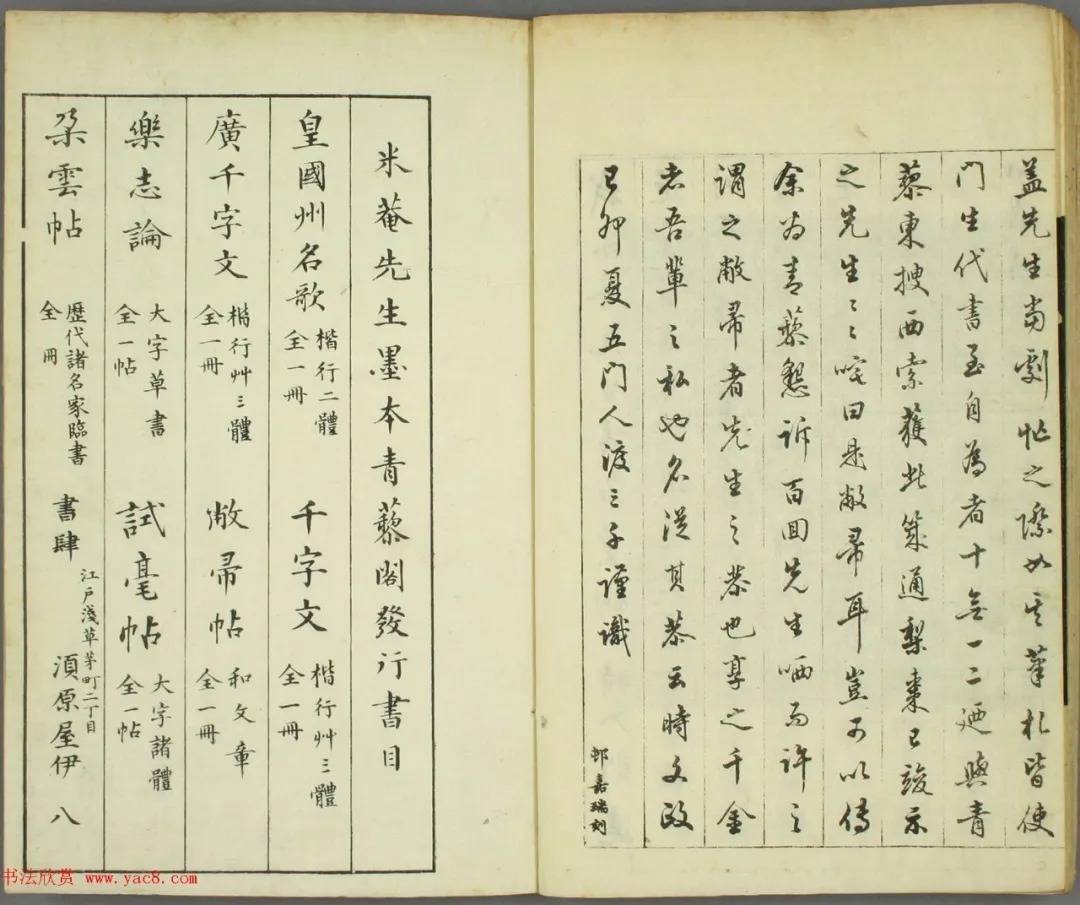 盖先生當劇忙之際如其筆札皆使
門生代書至自為者十無一二廼與青
藜東搜西索獲此箋通梨棗已竣示
之先生々々咤曰是敝帚耳豈可以傳
余為青藜懇訴百回先生哂而許之
謂之敝帚者先生之恭也享之千金
者吾輩之私也名從其恭云時文政
己卯夏五門人渡三子謹識
邨嘉瑞刻
米菴先生墨本青藜閣發行書目
皇國州名歌 楷行二體 全一冊
千字文 楷行艸三體 全一冊
廣千字文 楷行艸三體 全一冊
敝帚帖 和文章 全一冊
樂志論 大字草書 全一帖
試毫帖 大字諸體 全一帖
朶雲帖 歴代諸名家臨書 全 冊
書肆 江戸淺草茅町二丁目 須原屋伊八
书法欣赏 www.yac8.com